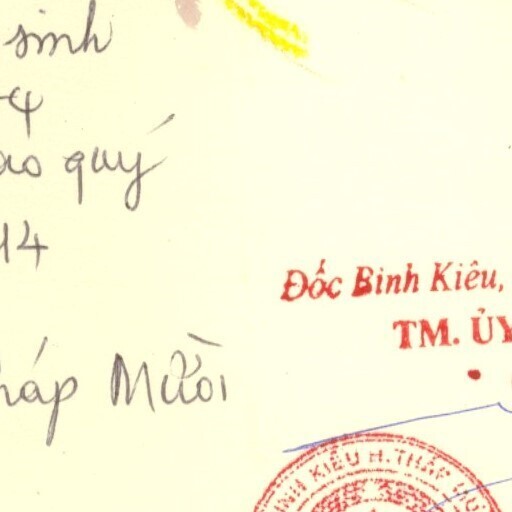 sinh
4
quý
14
háp Mười
Đốc Binh Kiều,
TM. ỦY
INH KIỀU H.THÁP MƯỜI